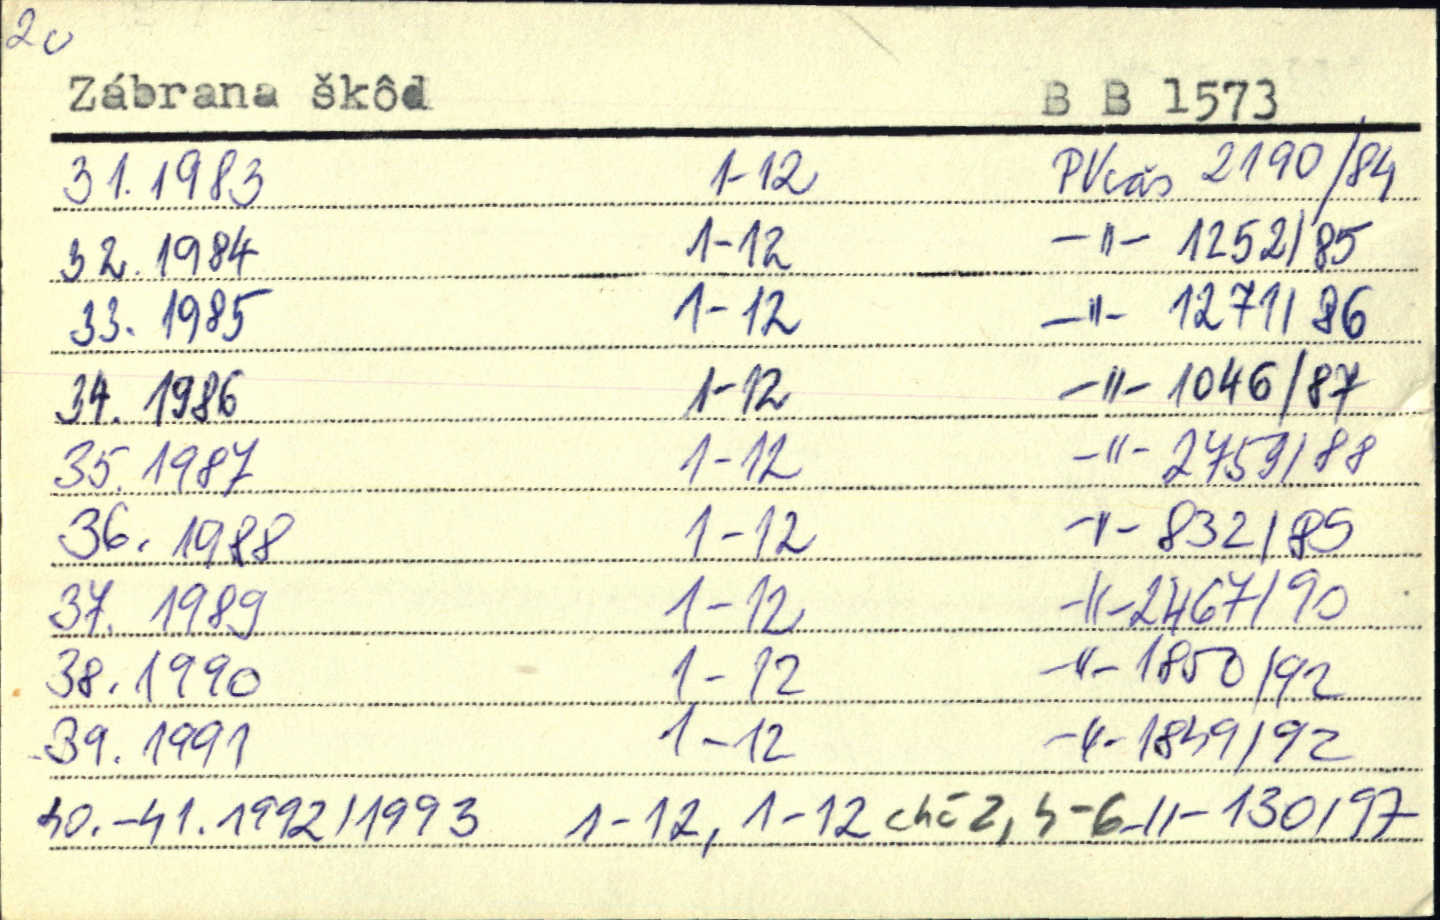 Zábrana škôd B B 1573
31. 1983 1-12 PVčas 2190/84
32. 1984 1-12 -"- 1252/85
33. 1985 1-12 -"- 1271/86
34. 1986 1-12 -"- 1046/87
35. 1987 1-12 -"- 2759/88
36. 1988 1-12 -"- 832/89
37. 1989 1-12 -"- 2467/90
38. 1990 1-12 -"- 1850/92
39. 1991 1-12 -"- 1849/92
40.-41. 1992/1993 1-12, 1-12 chč 2, 4-6 -"- 130/97